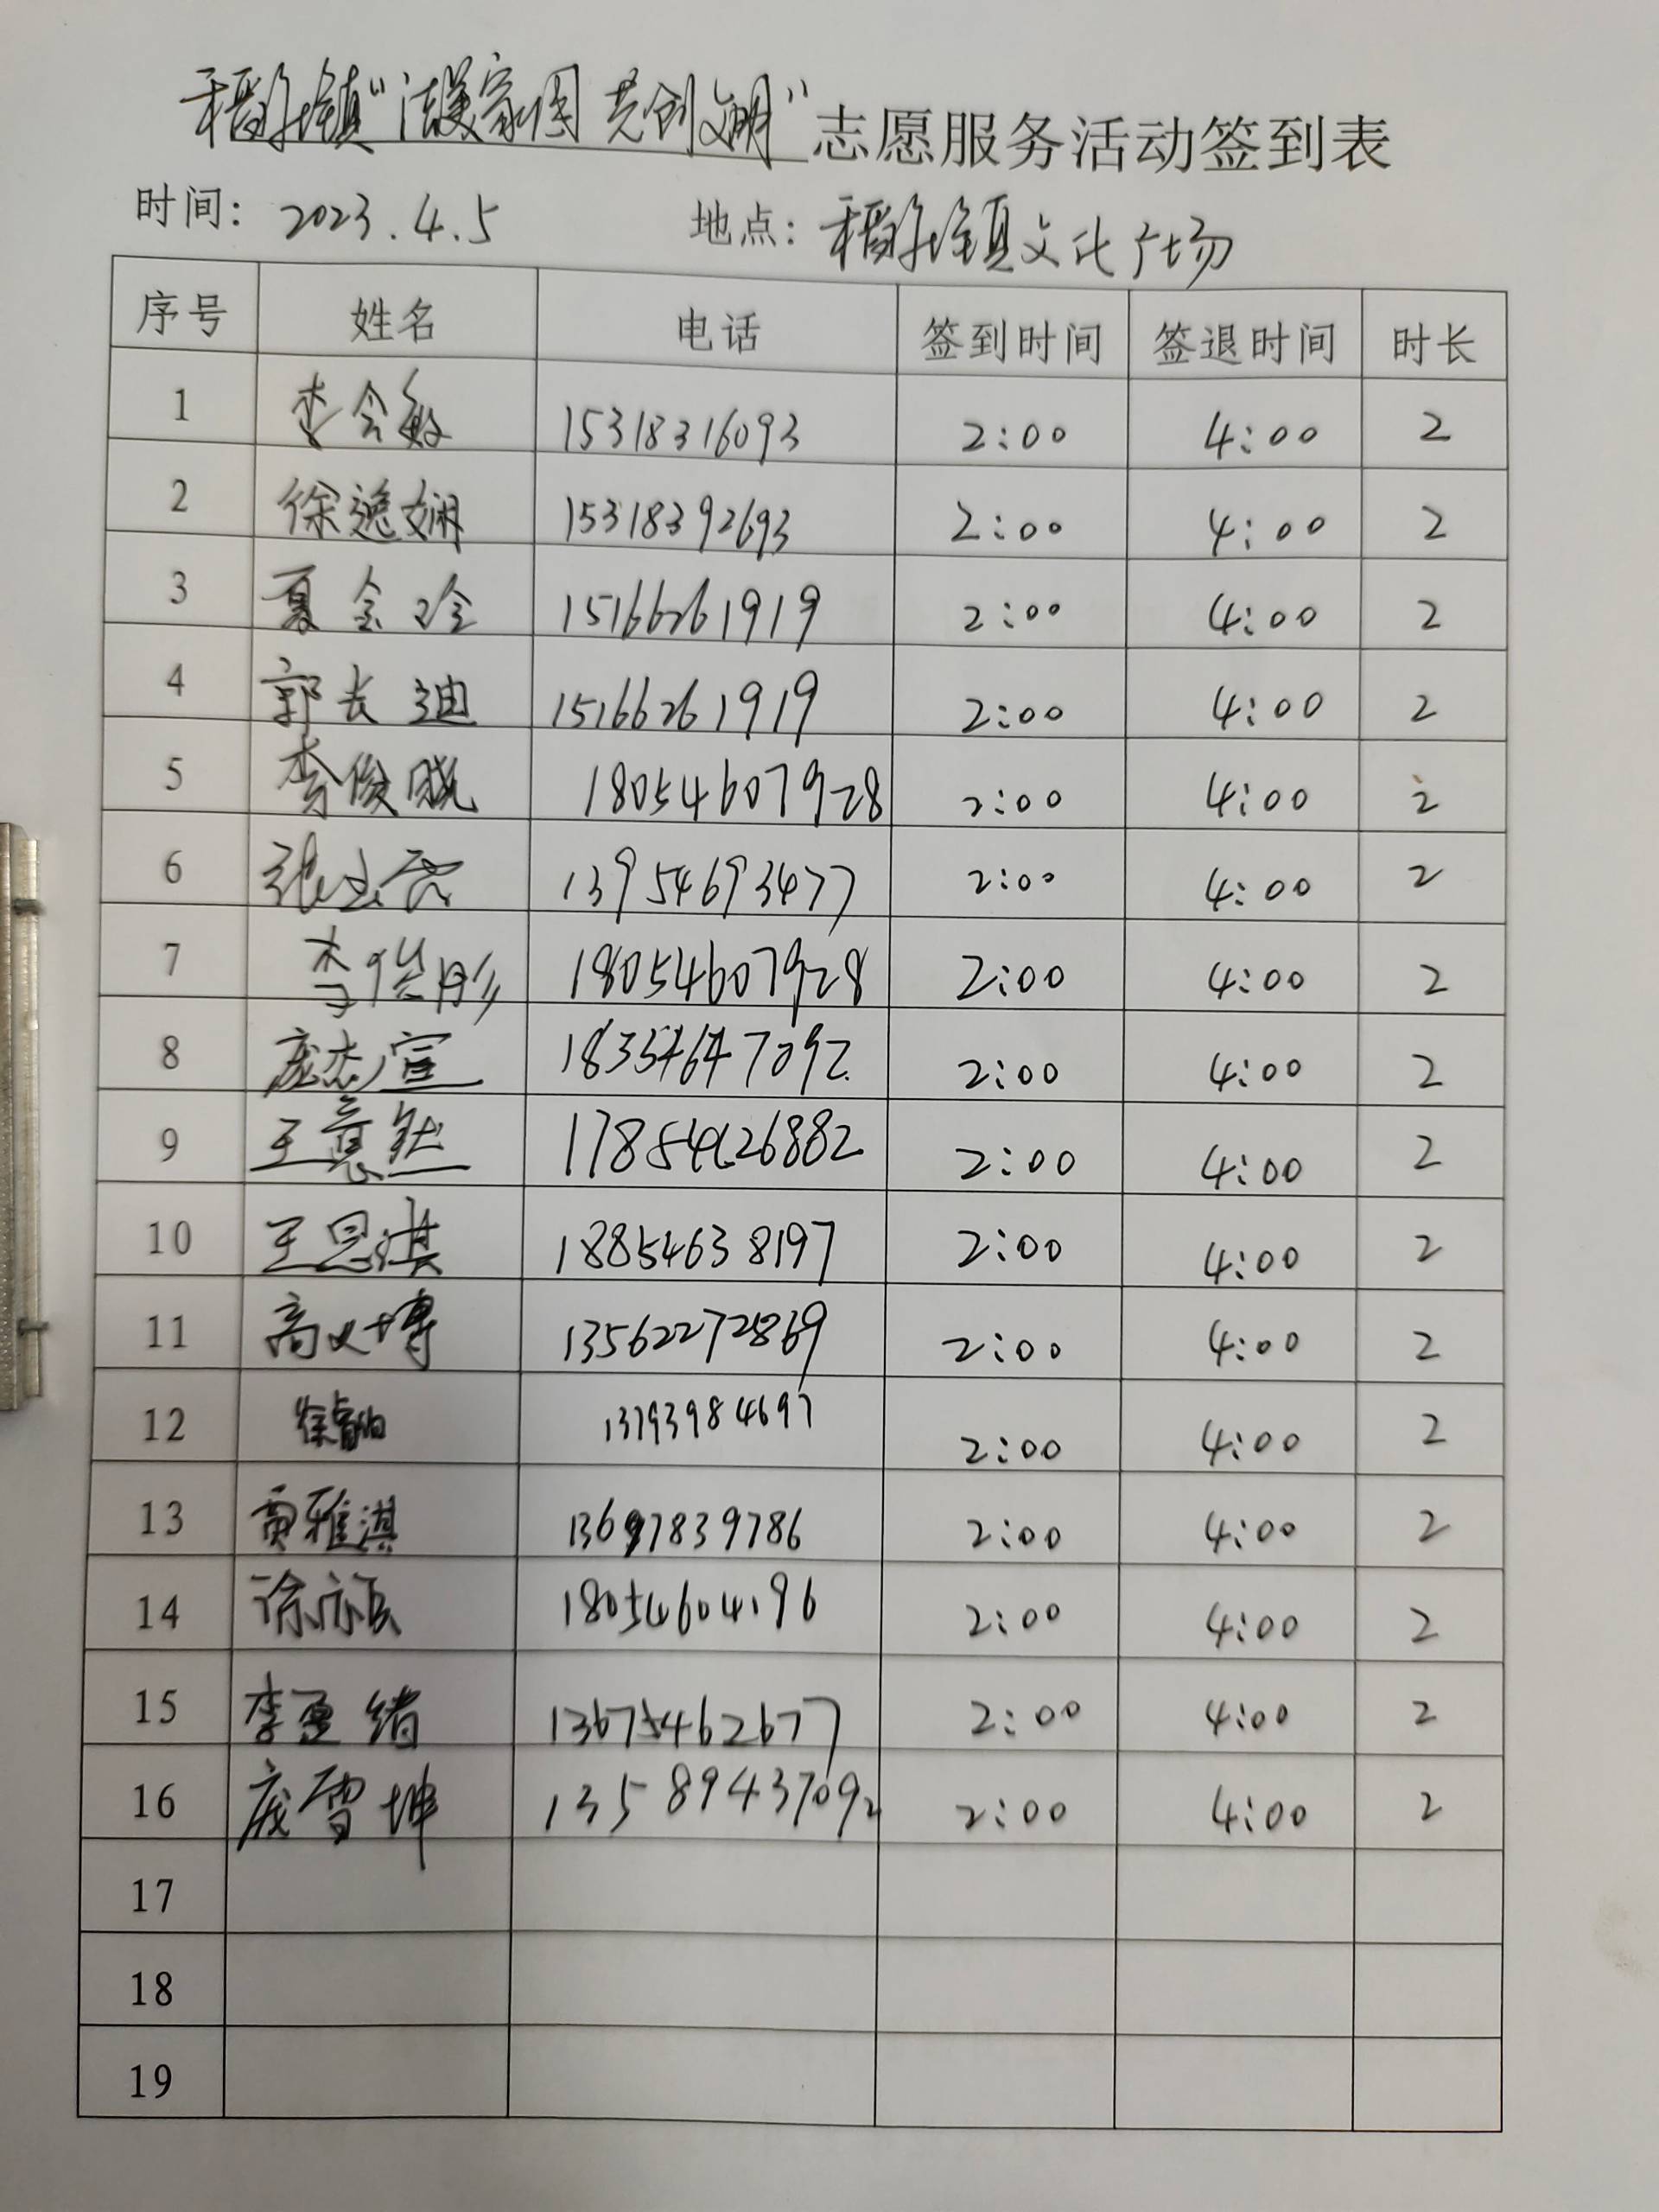 稻庄镇“洁美家园 共创文明”志愿服务活动签到表
时间：2023.4.5 地点：稻庄镇文化广场
序号 姓名 电话 签到时间 签退时间 时长
1 李会敏 15318316093 2:00 4:00 2
2 徐逸娴 15318392693 2:00 4:00 2
3 夏金玲 15166261919 2:00 4:00 2
4 郭长迪 15166261919 2:00 4:00 2
5 李俊晓 18054607928 2:00 4:00 2
6 13954693477 2:00 4:00 2
7 李俊彤 18054607928 2:00 4:00 2
8 庞志宣 18354647092 2:00 4:00 2
9 王意然 17854626882 2:00 4:00 2
10 王思淇 18854638197 2:00 4:00 2
11 高文博 13562272869 2:00 4:00 2
12 13793984697 2:00 4:00 2
13 贾雅淇 13697839786 2:00 4:00 2
14 18054604196 2:00 4:00 2
15 李亚绪 13675462677 2:00 4:00 2
16 庞雪坤 13589437092 2:00 4:00 2
17
18
19